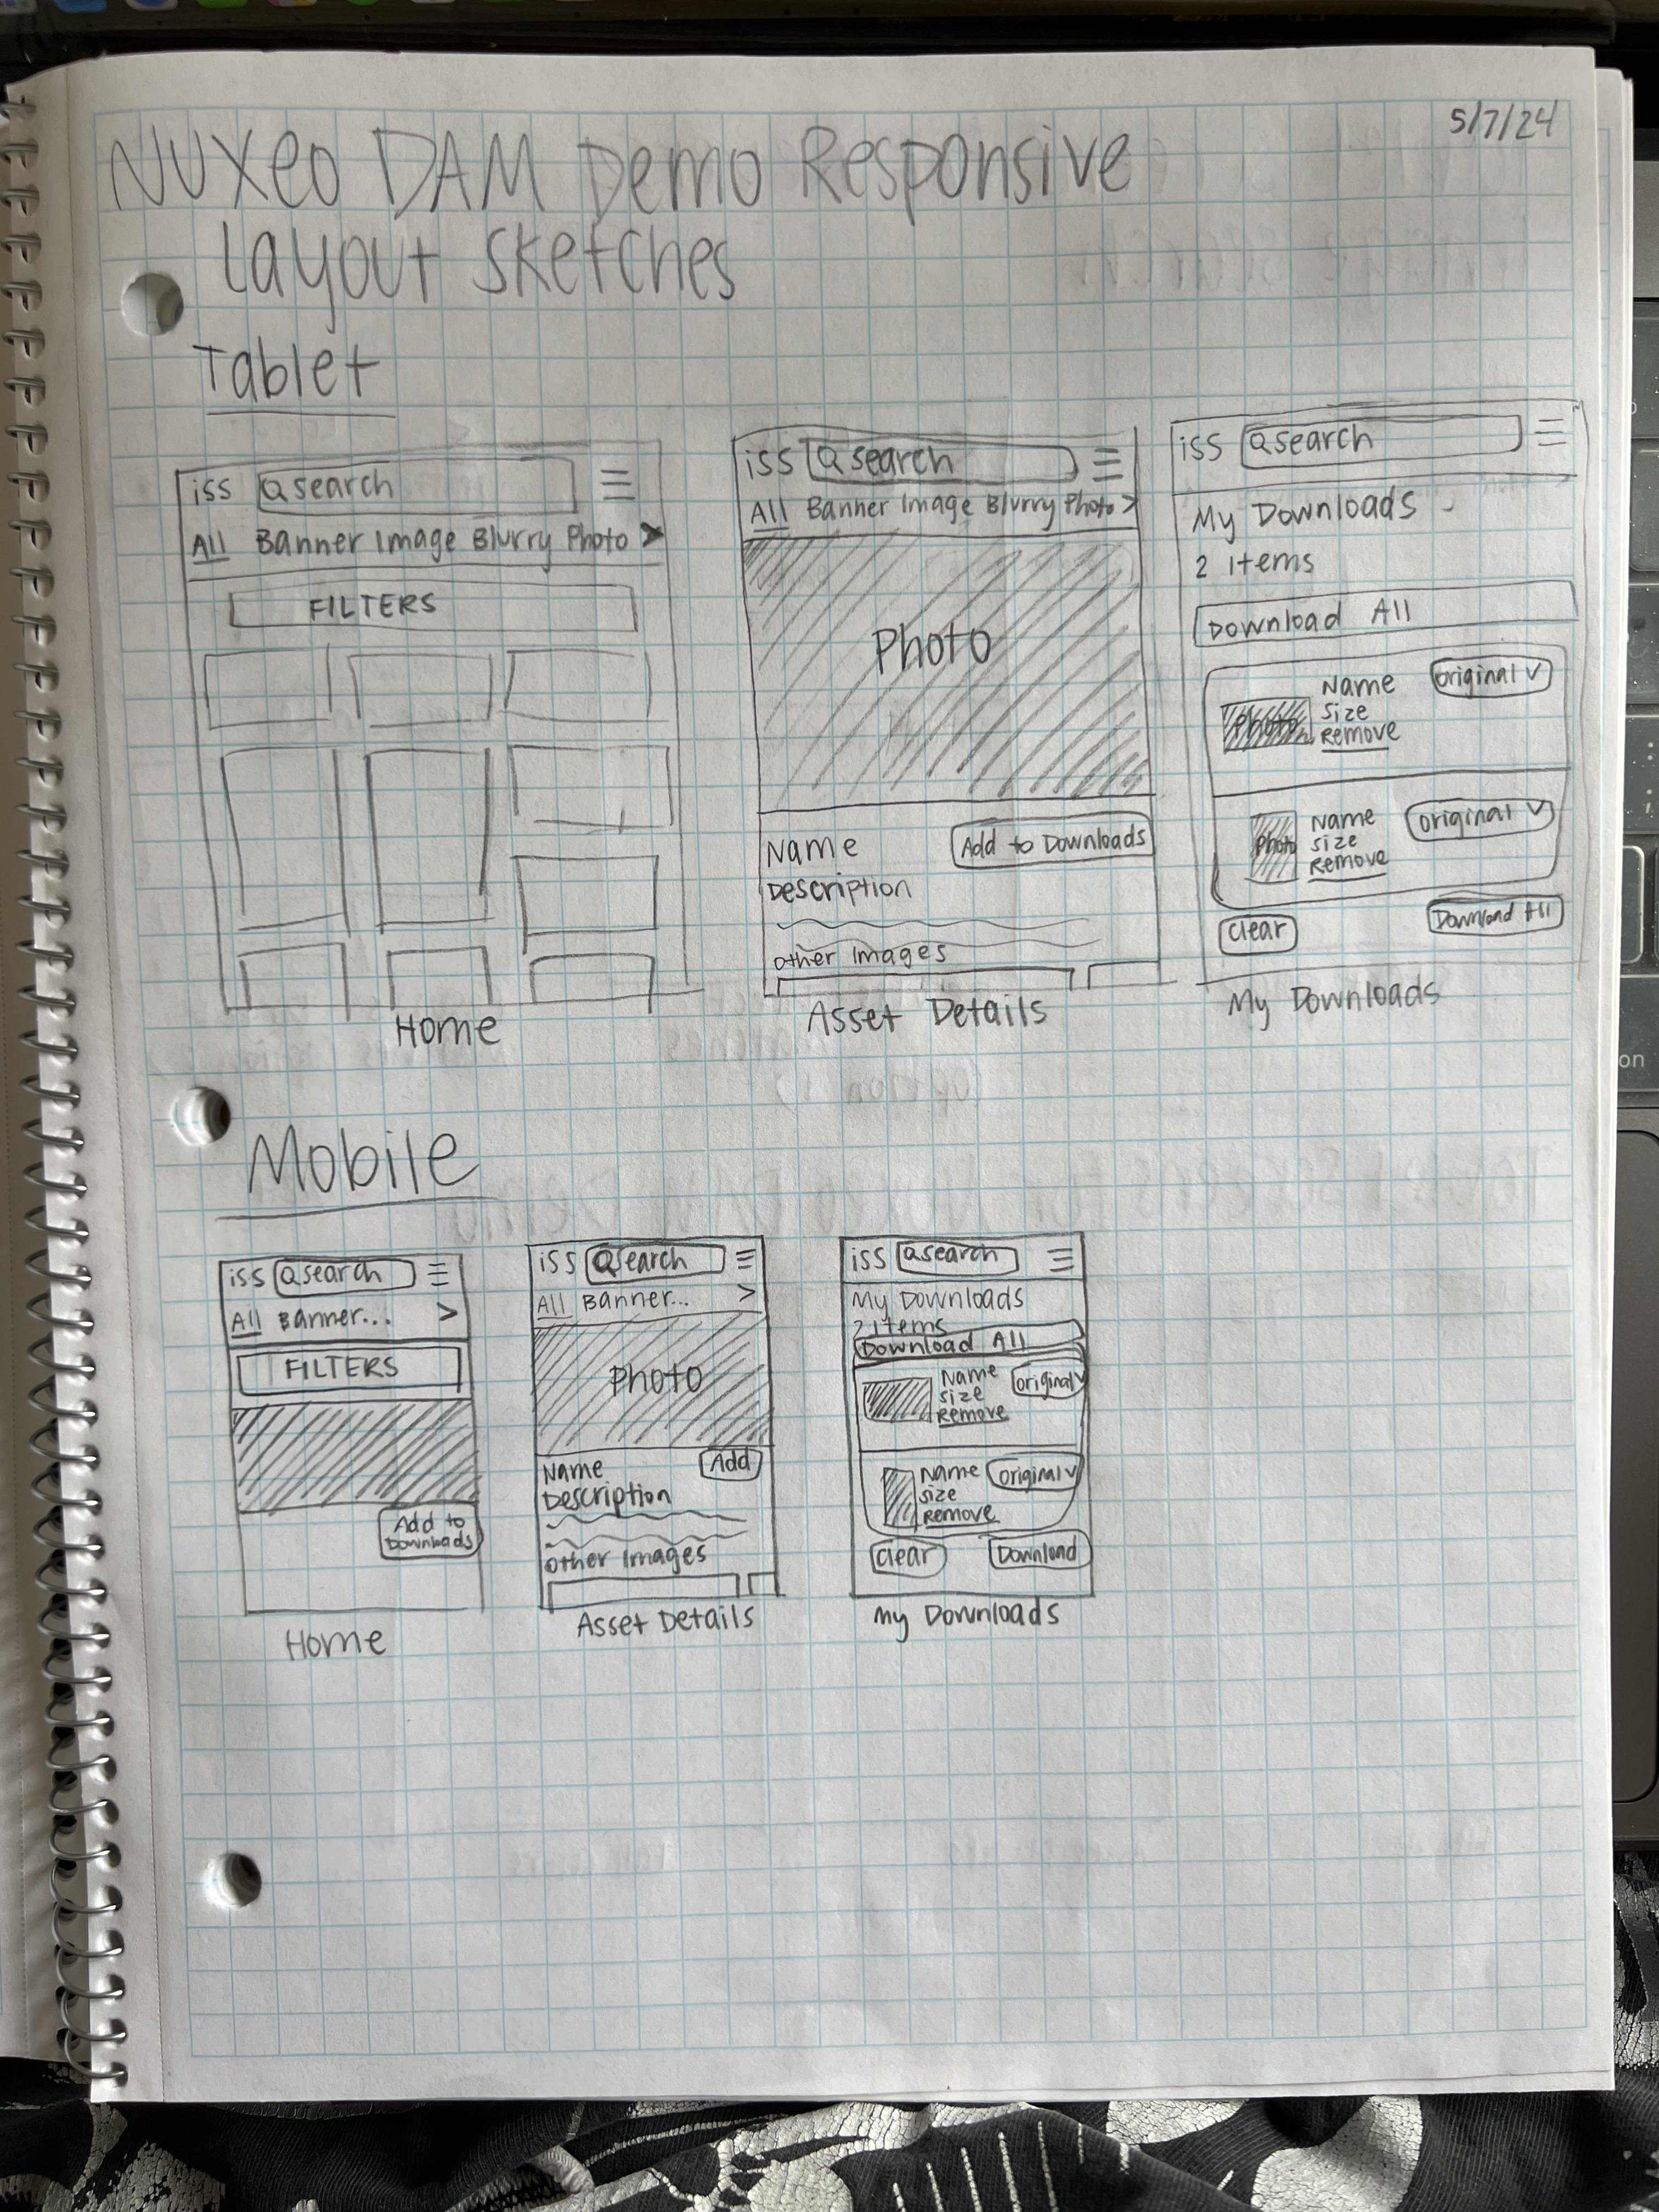 5/7/24
Nuxeo DAM Demo Responsive
Layout Sketches
Tablet
iss search
All Banner Image Blurry Photo >
FILTERS
Home
iss search
All Banner Image Blurry Photo >
Photo
Name Add to Downloads
Description
other Images
Asset Details
iss search
My Downloads
2 items
Download All
Name original
Photo size
Remove
Name original
Photo size
Remove
Clear Download All
My Downloads
Mobile
iss search
All Banner... >
FILTERS
Add to
Downloads
Home
iss search
All Banner... >
Photo
Name Add
Description
other Images
Asset Details
iss search
My Downloads
2 items
Download All
Name original
size
Remove
Name original
size
Remove
Clear Download
My Downloads